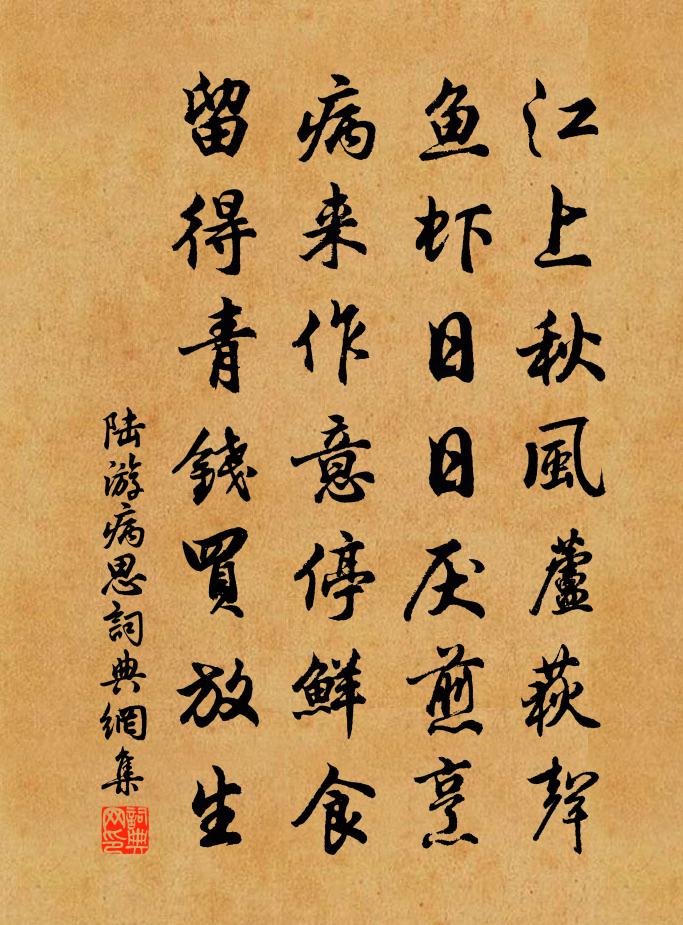 江上秋風蘆荻聲
鱼虾日日厌煎烹
病来作意停鮮食
留得青錢買放生
陆游病思詞典網集
詞典网印